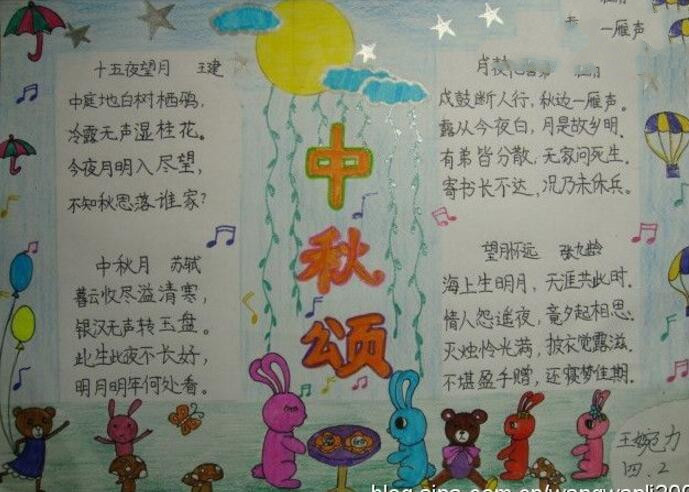 一雁声
十五夜望月 王建
中庭地白树栖鸦,
冷露无声湿桂花。
今夜月明人尽望,
不知秋思落谁家?
中秋月 苏轼
暮云收尽溢清寒,
银汉无声转玉盘。
此生此夜不长好,
明月明年何处看。
中
秋
颂
戍鼓断人行,秋边一雁声。
露从今夜白,月是故乡明.
有弟皆分散,无家问死生.
寄书长不达,况乃未休兵。
望月怀远 张九龄
海上生明月,天涯共此时.
情人怨遥夜,竟夕起相思.
灭烛怜光满,披衣觉露滋.
不堪盈手赠,还寝梦佳期.
四.2